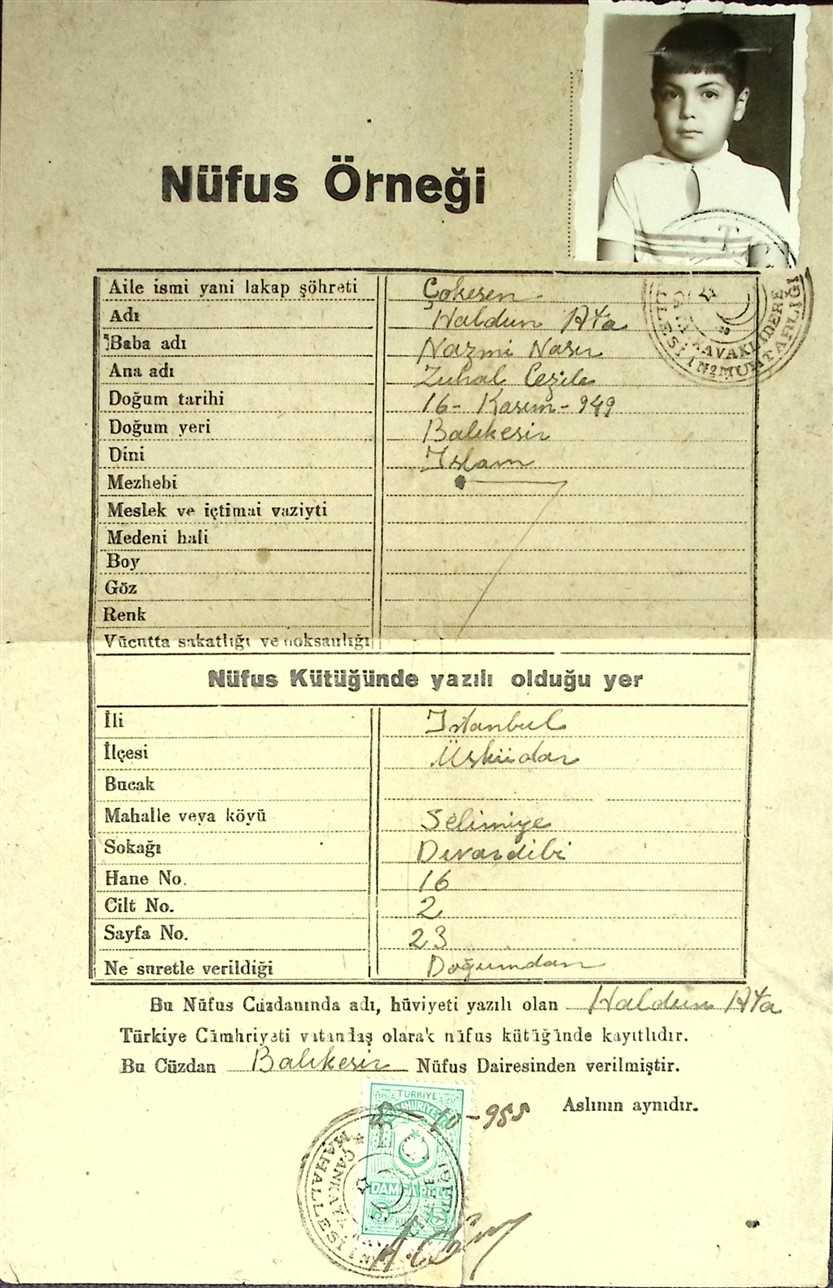 Nüfus Örneği
Aile ismi yani lakap şöhreti Çokesen
Adı Haldun Ata
Baba adı Nazmi Nasır
Ana adı Zuhal
Doğum tarihi 16 - Kasım - 949
Doğum yeri Balıkesir
Dini İslam
Mezhebi
Meslek ve içtimai vaziyti
Medeni hali
Boy
Göz
Renk
Vücutta sakatlığı ve noksanlığı
Nüfus Kütüğünde yazılı olduğu yer
İli İstanbul
İlçesi Üsküdar
Bucak
Mahalle veya köyü Selimiye
Sokağı Dıvardibi
Hane No. 16
Cilt No. 2
Sayfa No. 23
Ne suretle verildiği Doğumdan
Bu Nüfus Cüzdanında adı, hüviyeti yazılı olan Haldun Ata
Türkiye Cümhriyeti vatandaş olarak nüfus kütüğinde kayıtlıdır.
Bu Cüzdan Balıkesir Nüfus Dairesinden verilmiştir.
Aslının aynıdır.
TÜRKİYE
10 - 955